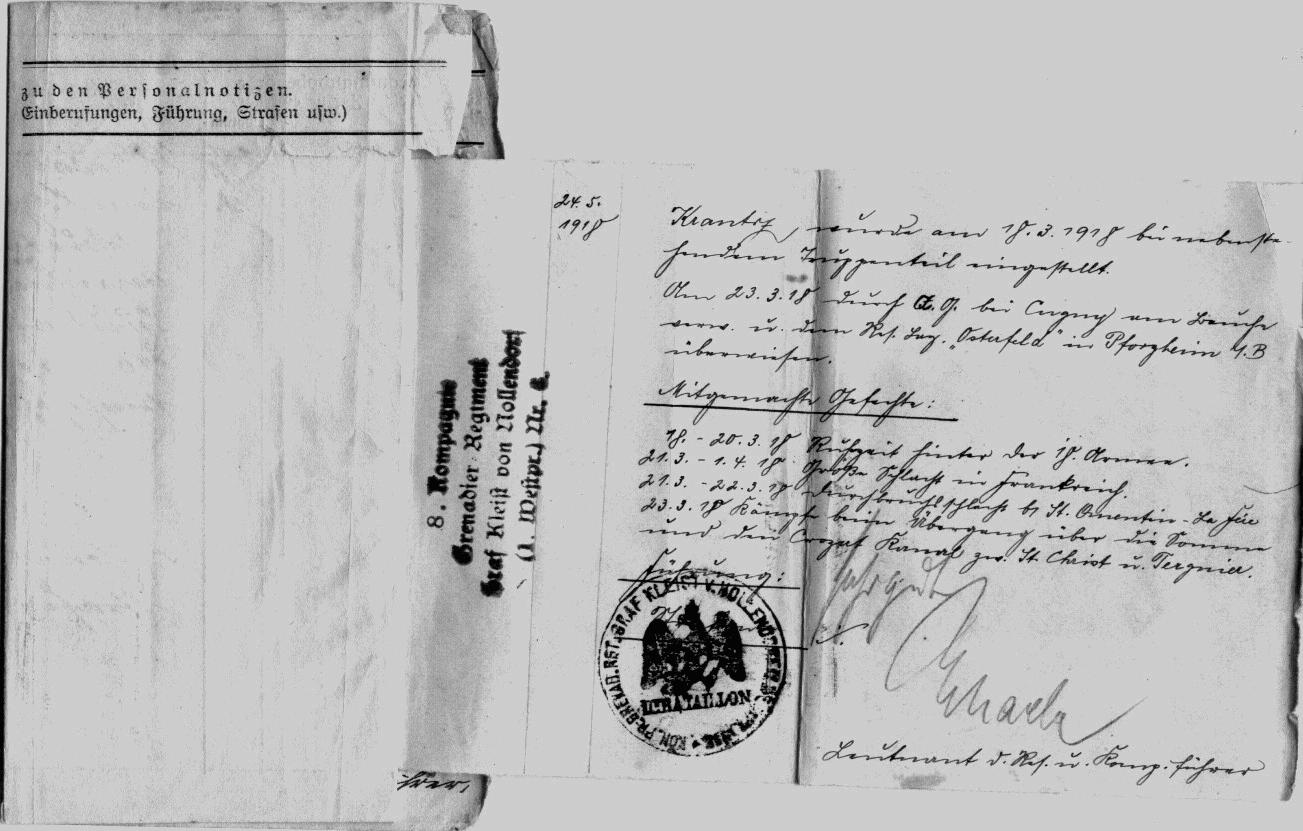 zu den Personalnotizen.
(Einberufungen, Führung, Strafen usw.)
8. Kompagnie
Grenadier-Regiment
Graf Kleist von Nollendorf
(1. Westpr.) Nr. 6.
24. 5.
1918
wurde am 18.3.1918 bei nebenste-
hendem Truppenteil eingestellt.
Am 23.3.18 durch A.G. bei Cugny am Bauche
verw. u. dem Res. Laz. „Osterfeld" in Pforzheim i. B
überwiesen.
Mitgemachte Gefechte:
18. - 20.3.18 Ruhezeit hinter der 18. Armee.
21.3. - 1.4.18 Große Schlacht in Frankreich.
21.3. - 22.3.18 Durchbruchschlacht b. St. Quentin - La Fère
23.3.18 Kämpfe beim Übergang über die Somme
und den Crozat Kanal zw. St. Christ u. Tergnier.
Führung: sehr gut
GRAF KLEIST V. NOLLENDORF
II. BATAILLON
KÖN. PR. GRENAD. RGT.
Leutnant d. Res. u. Komp. führer
ührer.